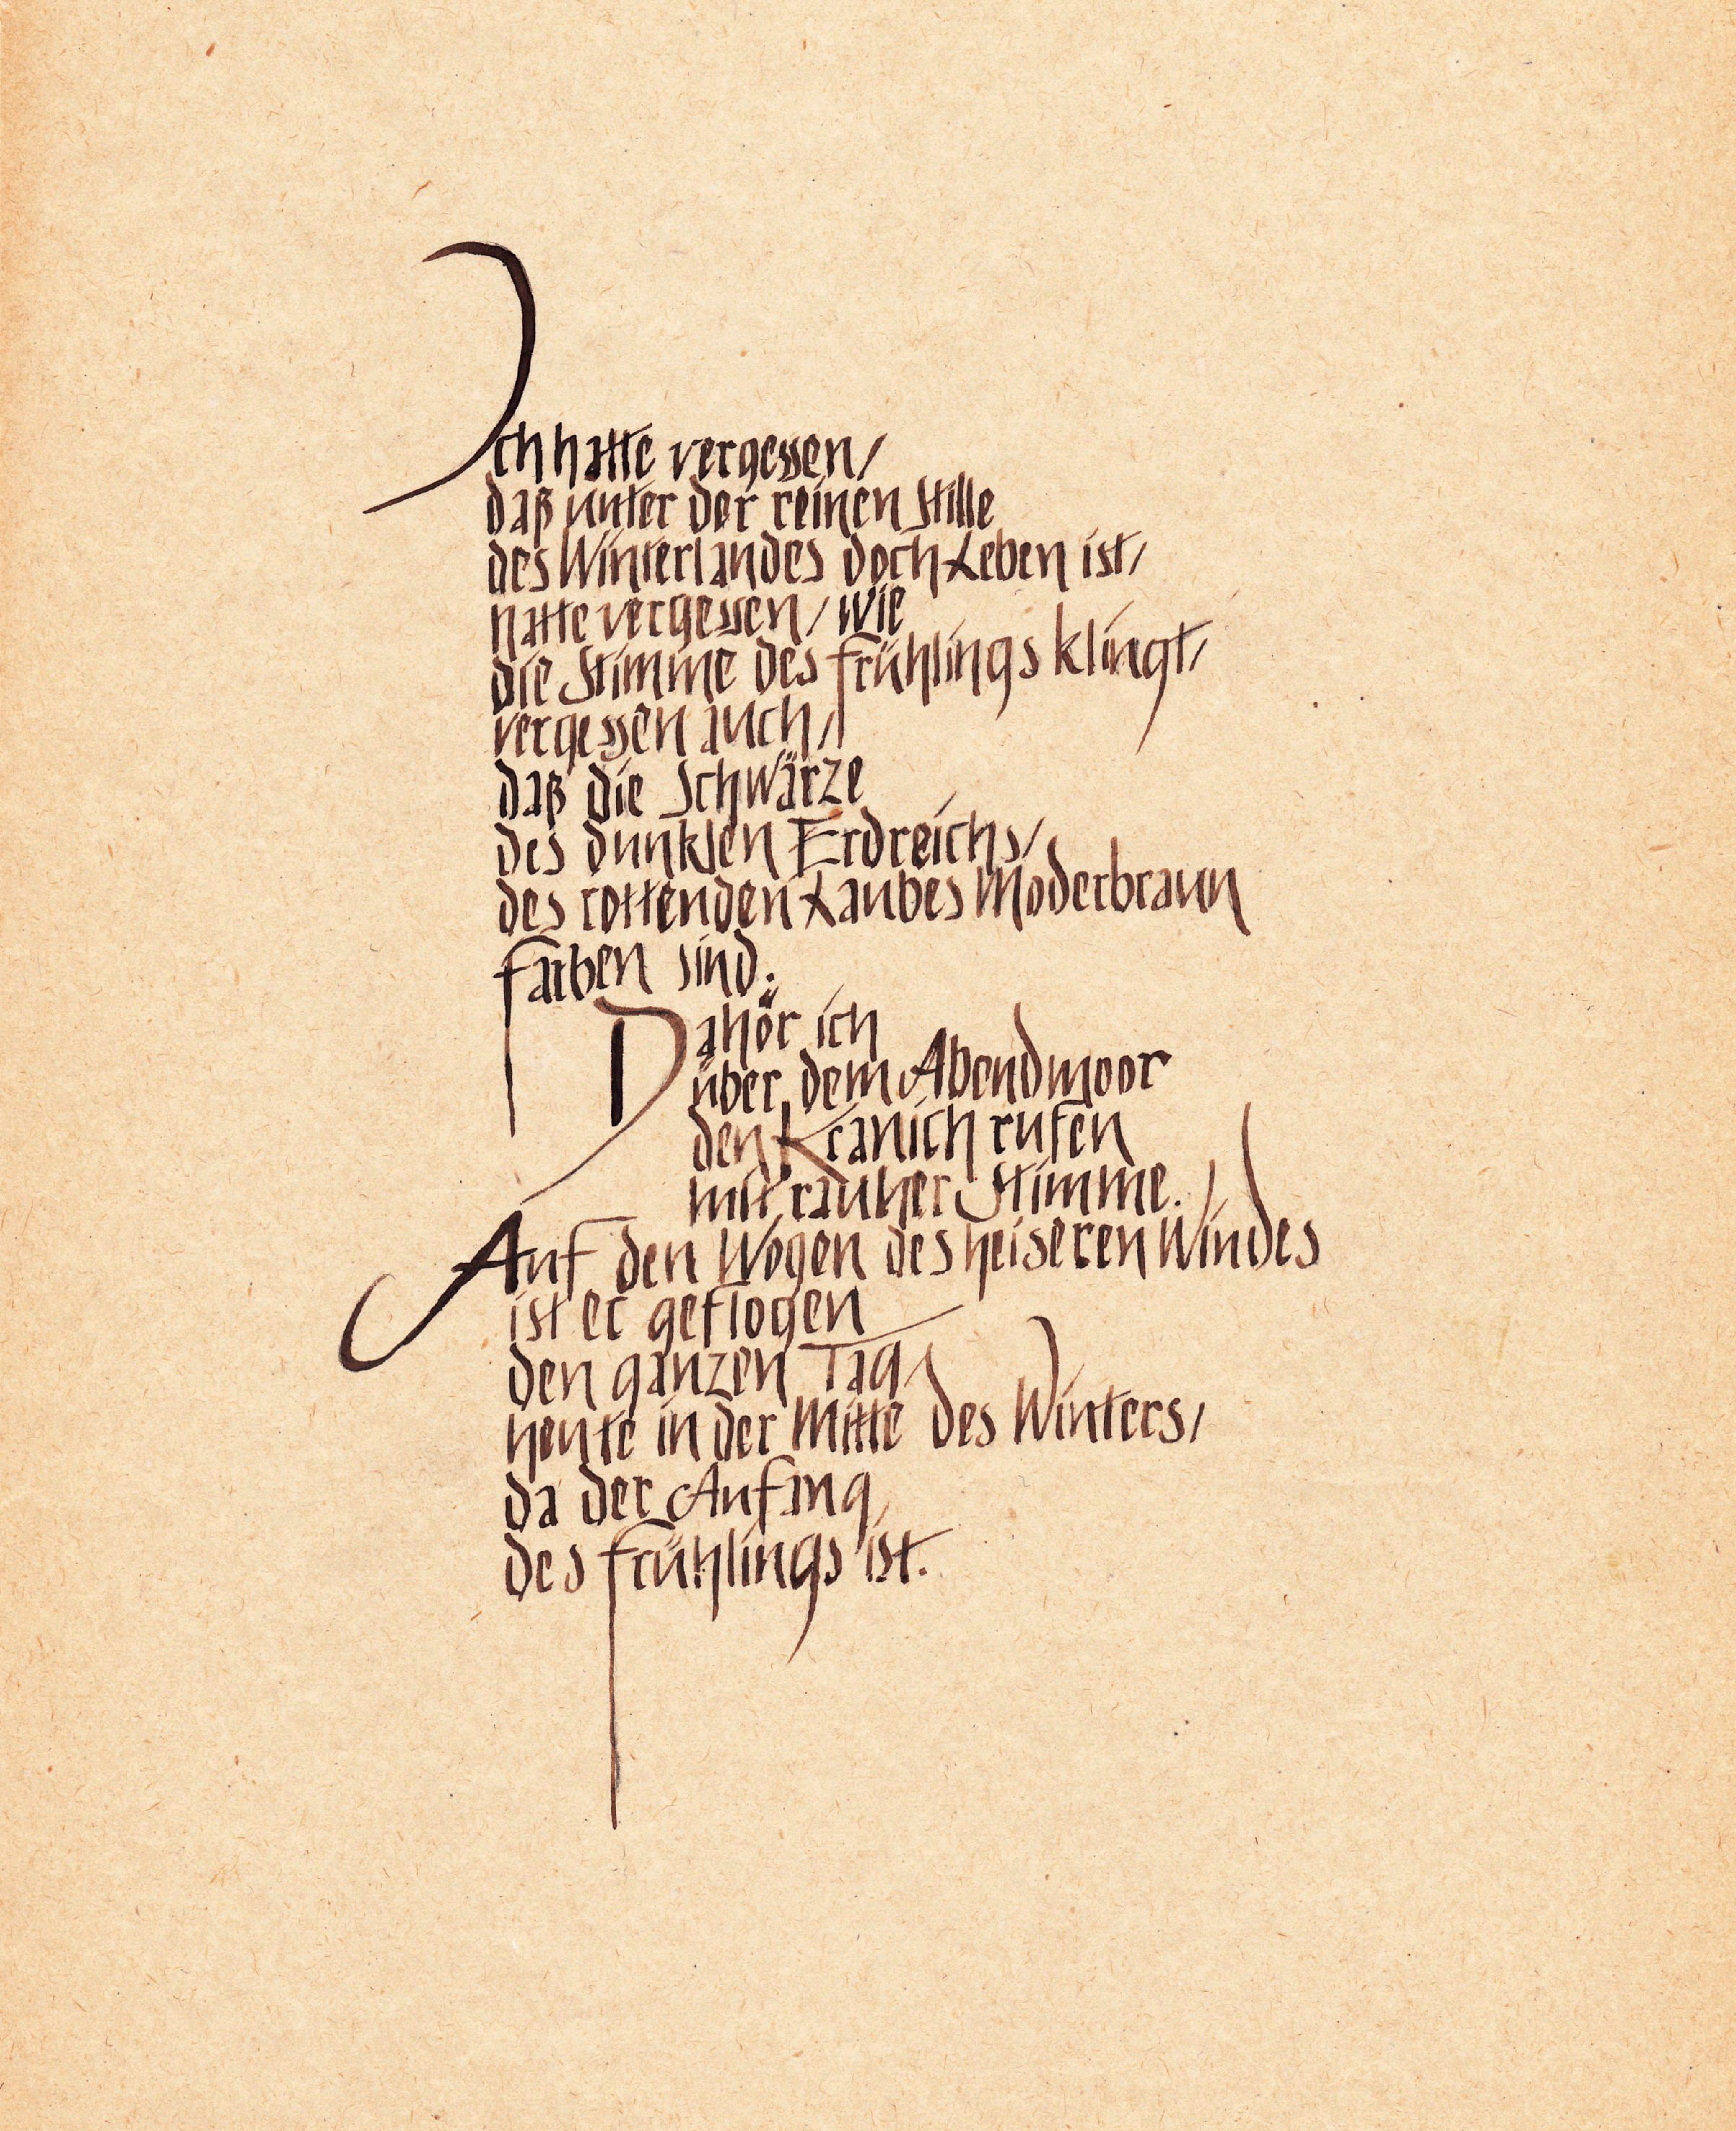 Ich hatte vergessen/
daß unter der reinen Stille
des Winterlandes doch Leben ist/
hatte vergessen/ wie
die Stimme des Frühlings klingt/
vergessen auch/
daß die Schwärze
des dunklen Erdreichs/
des rottenden Laubes Moderbraun
Farben sind.
Da hör ich
über dem Abendmoor
den Kranich rufen
mit rauher Stimme.
Auf den Wogen des heiseren Windes
ist er geflogen
den ganzen Tag/
heute in der Mitte des Winters/
da der Anfang
des Frühlings ist.